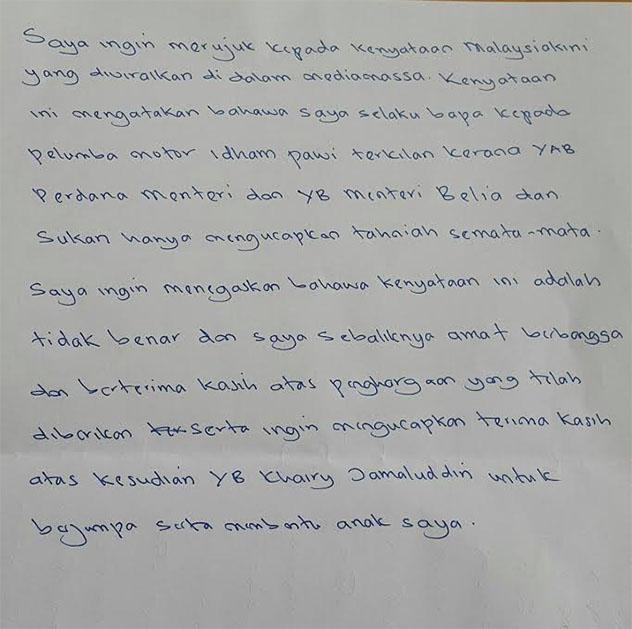 Saya ingin merujuk kepada kenyataan Malaysiakini
yang diviralkan di dalam mediamassa. Kenyataan
ini mengatakan bahawa saya selaku bapa kepada
pelumba motor Idham Pawi terkilan kerana YAB
Perdana Menteri dan YB Menteri Belia dan
Sukan hanya mengucapkan tahniah semata-mata.
Saya ingin menegaskan bahawa kenyataan ini adalah
tidak benar dan saya sebaliknya amat berbangga
dan berterima kasih atas penghargaan yang telah
diberikan serta ingin mengucapkan terima kasih
atas kesudian YB Khairy Jamaluddin untuk
berjumpa serta membantu anak saya.